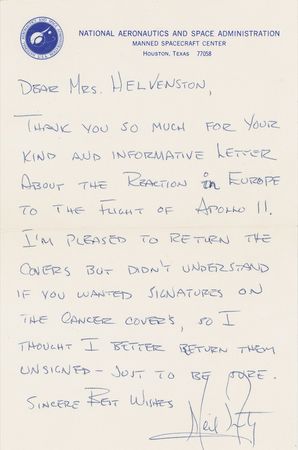 NATIONAL AERONAUTICS AND SPACE ADMINISTRATION
MANNED SPACECRAFT CENTER
HOUSTON, TEXAS 77058
DEAR MRS. HELVENSTON,
THANK YOU SO MUCH FOR YOUR
KIND AND INFORMATIVE LETTER
ABOUT THE REACTION in EUROPE
TO THE FLIGHT OF APOLLO 11.
I'M PLEASED TO RETURN THE
COVERS BUT DIDN'T UNDERSTAND
IF YOU WANTED SIGNATURES ON
THE CANCER COVERS, SO I
THOUGHT I BETTER RETURN THEM
UNSIGNED - JUST TO BE SURE.
SINCERE BEST WISHES
Neil